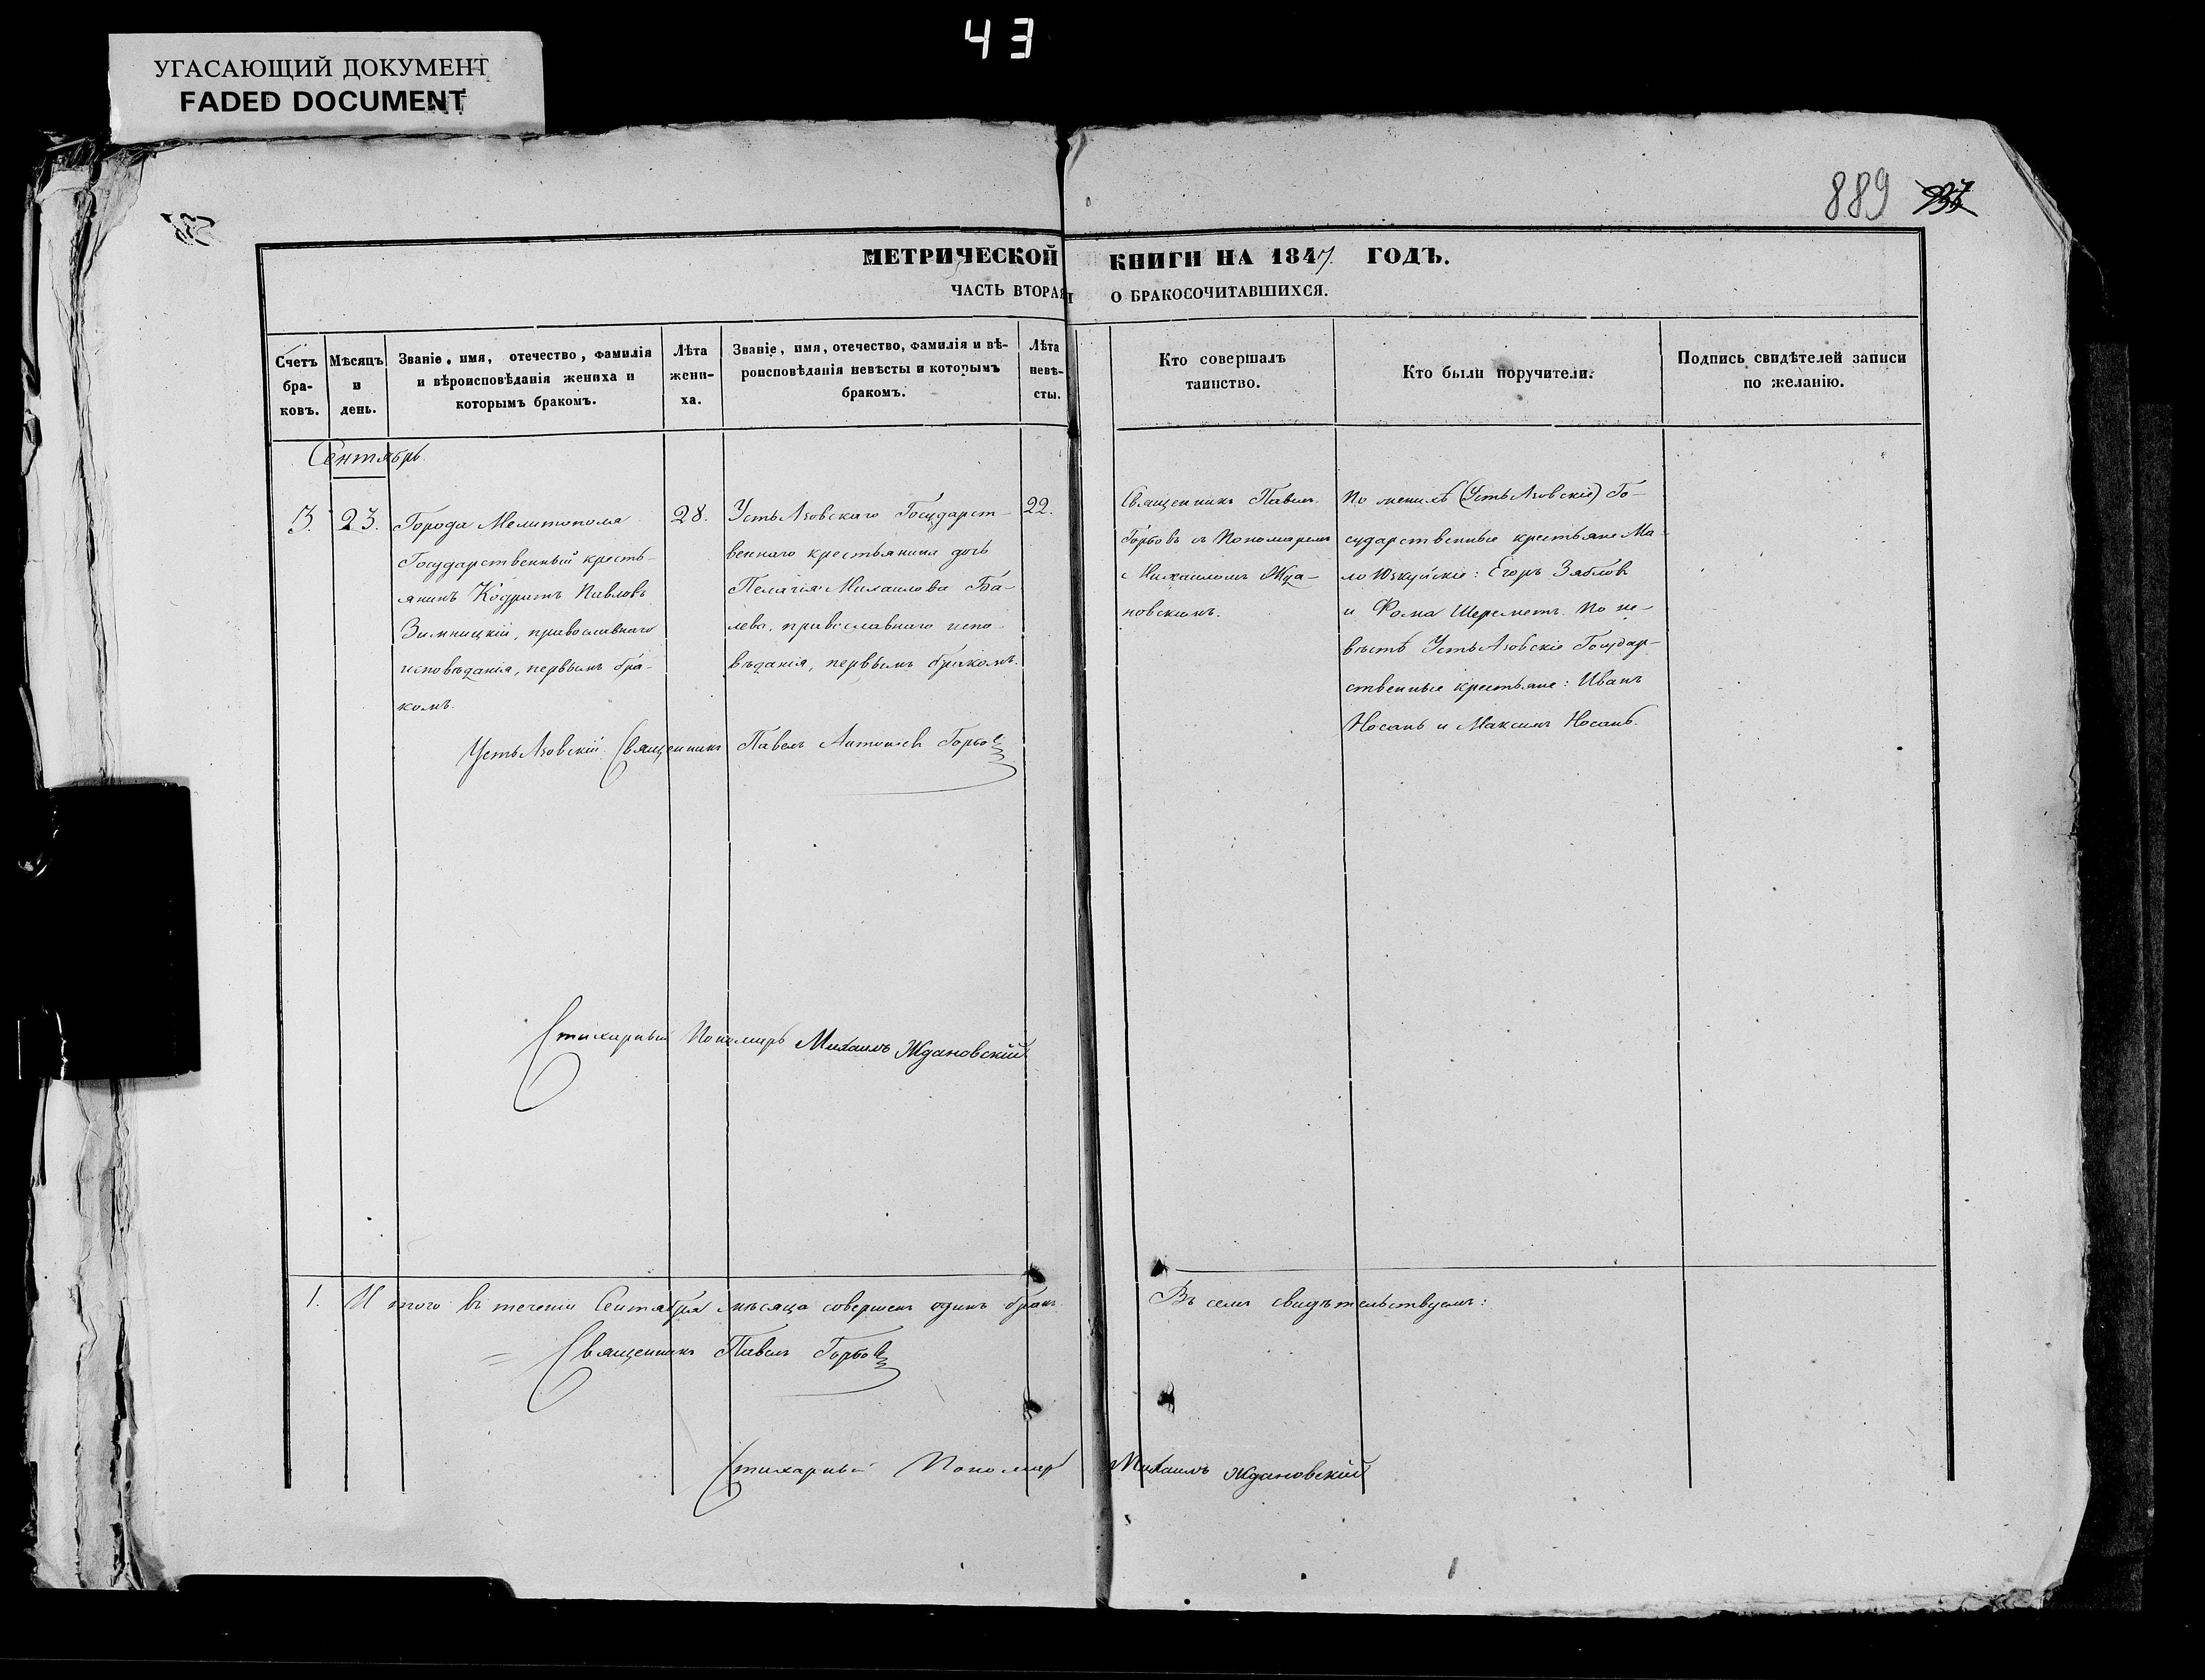 43
УГАСАЮЩИЙ ДОКУМЕНТ
FADED DOCUMENT
889
МЕТРИЧЕСКОЙ КНИГИ НА 1847 ГОДЪ.
ЧАСТЬ ВТОРАЯ О БРАКОСОЧИТАВШИХСЯ.
Счетъ
бра-
ковъ.
Мѣсяцъ
и
день.
Званіе, имя, отечество, фамилія
и вѣроисповѣданія жениха и
которымъ бракомъ.
Лѣта
жени-
ха.
Званіе, имя, отечество, фамилія и вѣ-
роисповѣданія невѣсты и которымъ
бракомъ.
Лѣта
невѣ-
сты.
Кто совершалъ
таинство.
Кто были поручители.
Подпись свидѣтелей записи
по желанію.
Сентябрь
3.
23.
Города Мелитополя
Государственный кресть-
янинъ Кодратъ Павловъ
Зимницкій, православнаго
исповѣданія, первымъ бра-
комъ.
28.
Усть Азовскаго Государст-
веннаго крестьянина дочь
Пелагія Михаилова Ба-
лева, православнаго испо-
вѣданія, первымъ бракомъ.
22.
Священникъ Павелъ
Горбовъ съ Пономаремъ
Михаиломъ Жда-
новскимъ.
По женихѣ (Усть Азовскіе) Го-
сударственные крестьяне Ма-
ло Утлюгскіе: Егоръ Зябловъ
и Фома Шереметъ. По не-
вѣстѣ Усть Азовскіе Государ-
ственные крестьяне: Иванъ
Носань и Максимъ Носань.
Усть Азовскій Священникъ Павелъ Горбовъ
Стихарный Пономарь Михаилъ Ждановскій
1. И того въ теченіи Сентября мѣсяца совершенъ одинъ бракъ.
Въ семъ свидѣтельствуемъ:
Священникъ Павелъ Горбовъ
Стихарный Пономарь Михаилъ Ждановскій